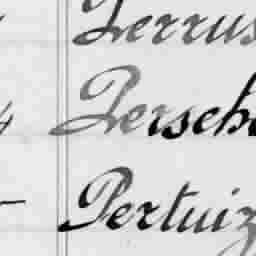 Perrus
4 Persch
Pertuiz